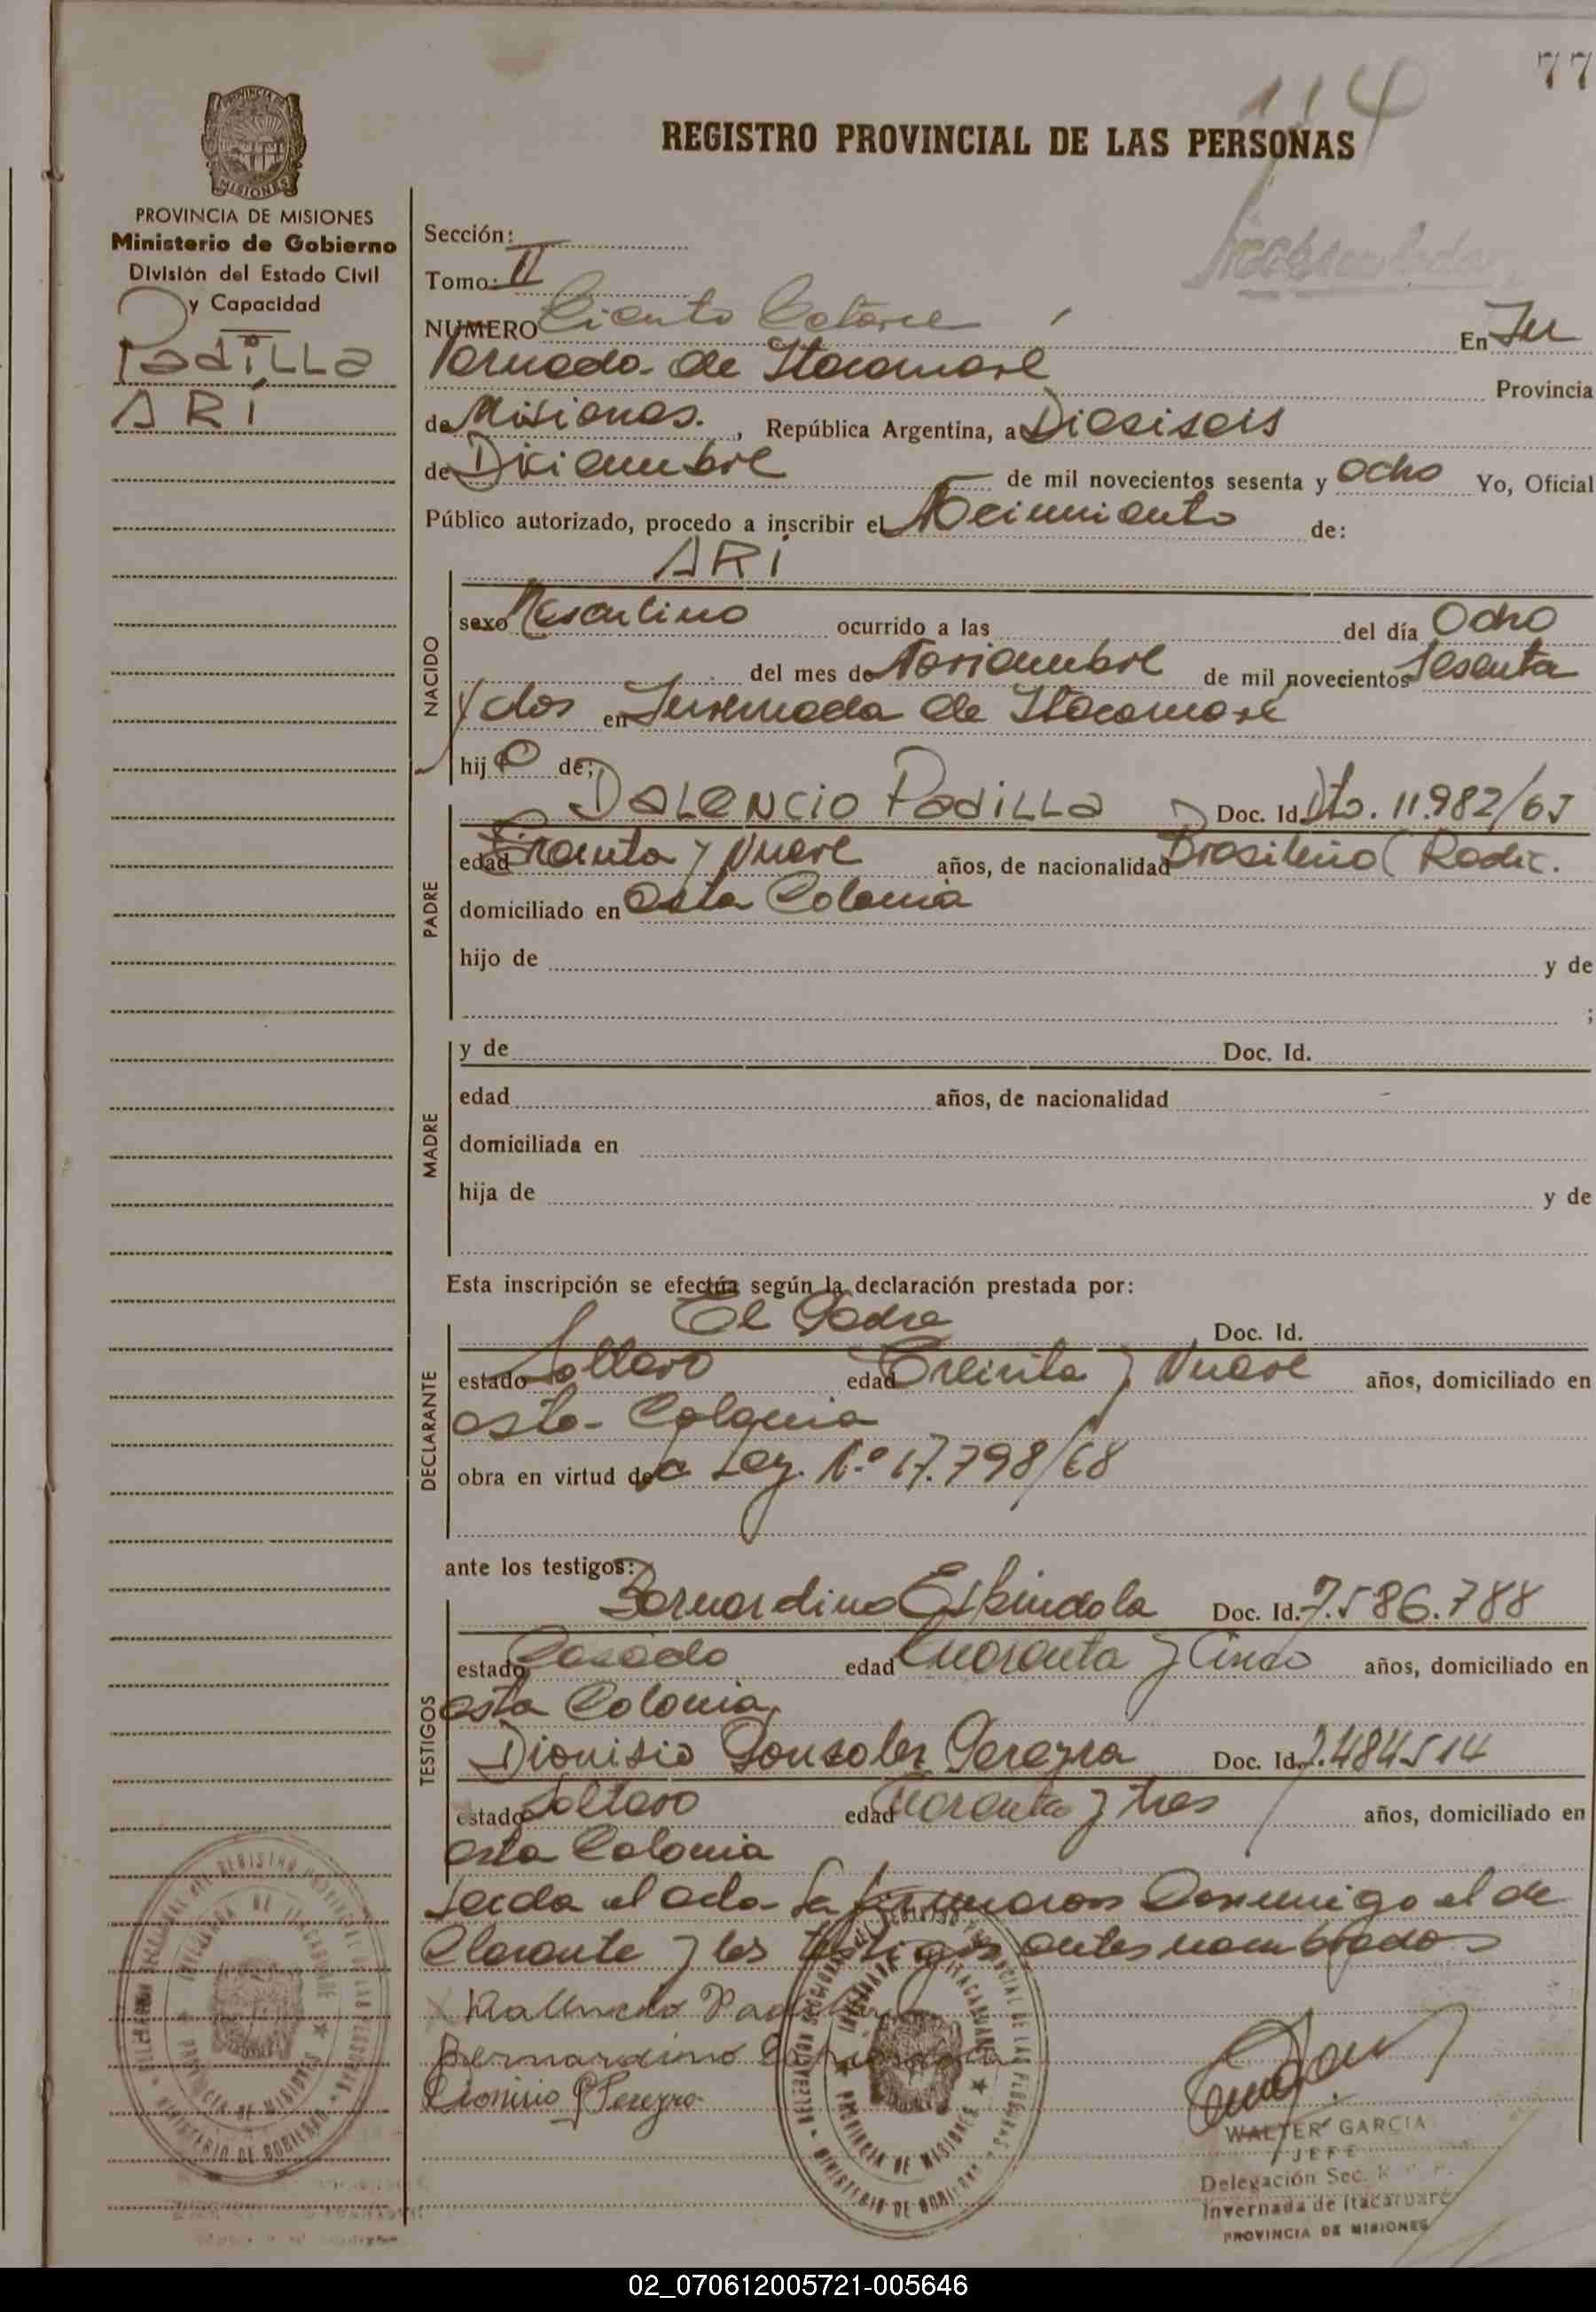 77
114
REGISTRO PROVINCIAL DE LAS PERSONAS
PROVINCIA DE MISIONES
Ministerio de Gobierno
División del Estado Civil
y Capacidad
Padilla
ARi
Sección:
Tomo: II
NUMERO Ciento Catorce En In
vernada de Itacaruaré Provincia
de Misiones. , República Argentina, a Dieciseis
de Diciembre de mil novecientos sesenta y ocho Yo, Oficial
Público autorizado, procedo a inscribir el Nacimiento de:
ARi
NACIDO
sexo Masculino ocurrido a las del día Ocho
del mes de Noviembre de mil novecientos Sesenta
y dos en Invernada de Itacaruaré
hijo de;
PADRE
DALENCiO PadiLLa Doc. Id. Dto. 11.982/65
edad Treinta y Nueve años, de nacionalidad Brasileño (Radic.
domiciliado en esta Colonia
hijo de y de
;
MADRE
y de Doc. Id.
edad años, de nacionalidad
domiciliada en
hija de y de
Esta inscripción se efectúa según la declaración prestada por:
DECLARANTE
El Padre , Doc. Id.
estado Soltero edad Treinta y Nueve años, domiciliado en
esta Colonia
obra en virtud de Ley. N.º 17.798/68
ante los testigos:
TESTIGOS
Bernardino Espindola Doc. Id. 7.586.788
estado Casado edad Cuarenta y Cinco años, domiciliado en
esta Colonia,
Dionisio Gonsales Pereyra Doc. Id. 7.484514
estado Soltero edad Cuarenta y tres años, domiciliado en
esta Colonia
Leida el acta la firmaron Conmigo el de
Clarante y los testigos antes nombrados
Bernardino Espindola
Dionisio G Pereyra
WALTER GARCIA
JEFE
Delegación Sec.
Invernada de Itacaruaré
PROVINCIA DE MISIONES
02_070612005721-005646